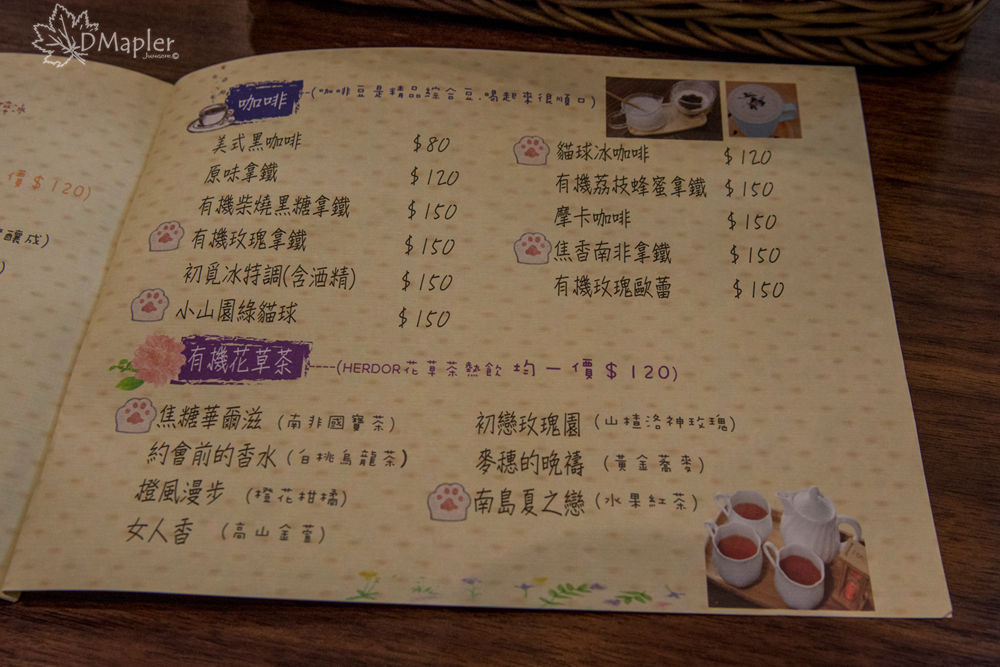 DMapler
咖啡 (咖啡豆是精品綜合豆.喝起來很順口)
美式黑咖啡 $80
原味拿鐵 $120
有機柴燒黑糖拿鐵 $150
有機玫瑰拿鐵 $150
初覓冰特調(含酒精) $150
小山園綠貓球 $150
貓球冰咖啡 $120
有機荔枝蜂蜜拿鐵 $150
摩卡咖啡 $150
焦香南非拿鐵 $150
有機玫瑰歐蕾 $150
有機花草茶 ----(HERDOR花草茶熱飲 均一價$120)
焦糖華爾滋 (南非國寶茶)
約會前的香水 (白桃烏龍茶)
橙風漫步 (橙花柑橘)
女人香 (高山金萱)
初戀玫瑰園 (山楂洛神玫瑰)
麥穗的晚禱 (黃金蕎麥)
南島夏之戀 (水果紅茶)
價$120)
釀成)